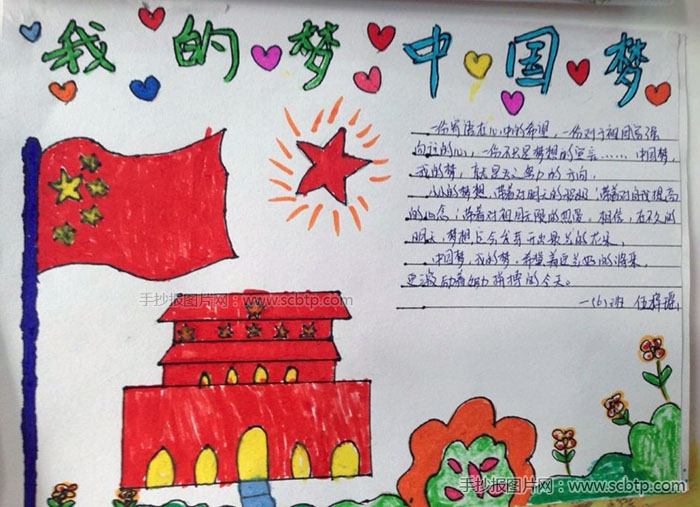 我的梦 中国梦
一份寄语在心中的希望,一份对于祖国富强
向往的心,一份不只是梦想的宣言……中国梦,
我的梦,就是我之努力的方向。
小小的梦想,带着对明天的,带着对自我提高
的信念,带着对祖国无限的热爱,相信,在不久的
明天,梦想
中国梦,我的梦,希望着更美好的将来,
更激励着努力拼搏的今天。
一(6)班 伍
手抄报图片网:www.scbtp.com
手抄报图片网:www.scbtp.com